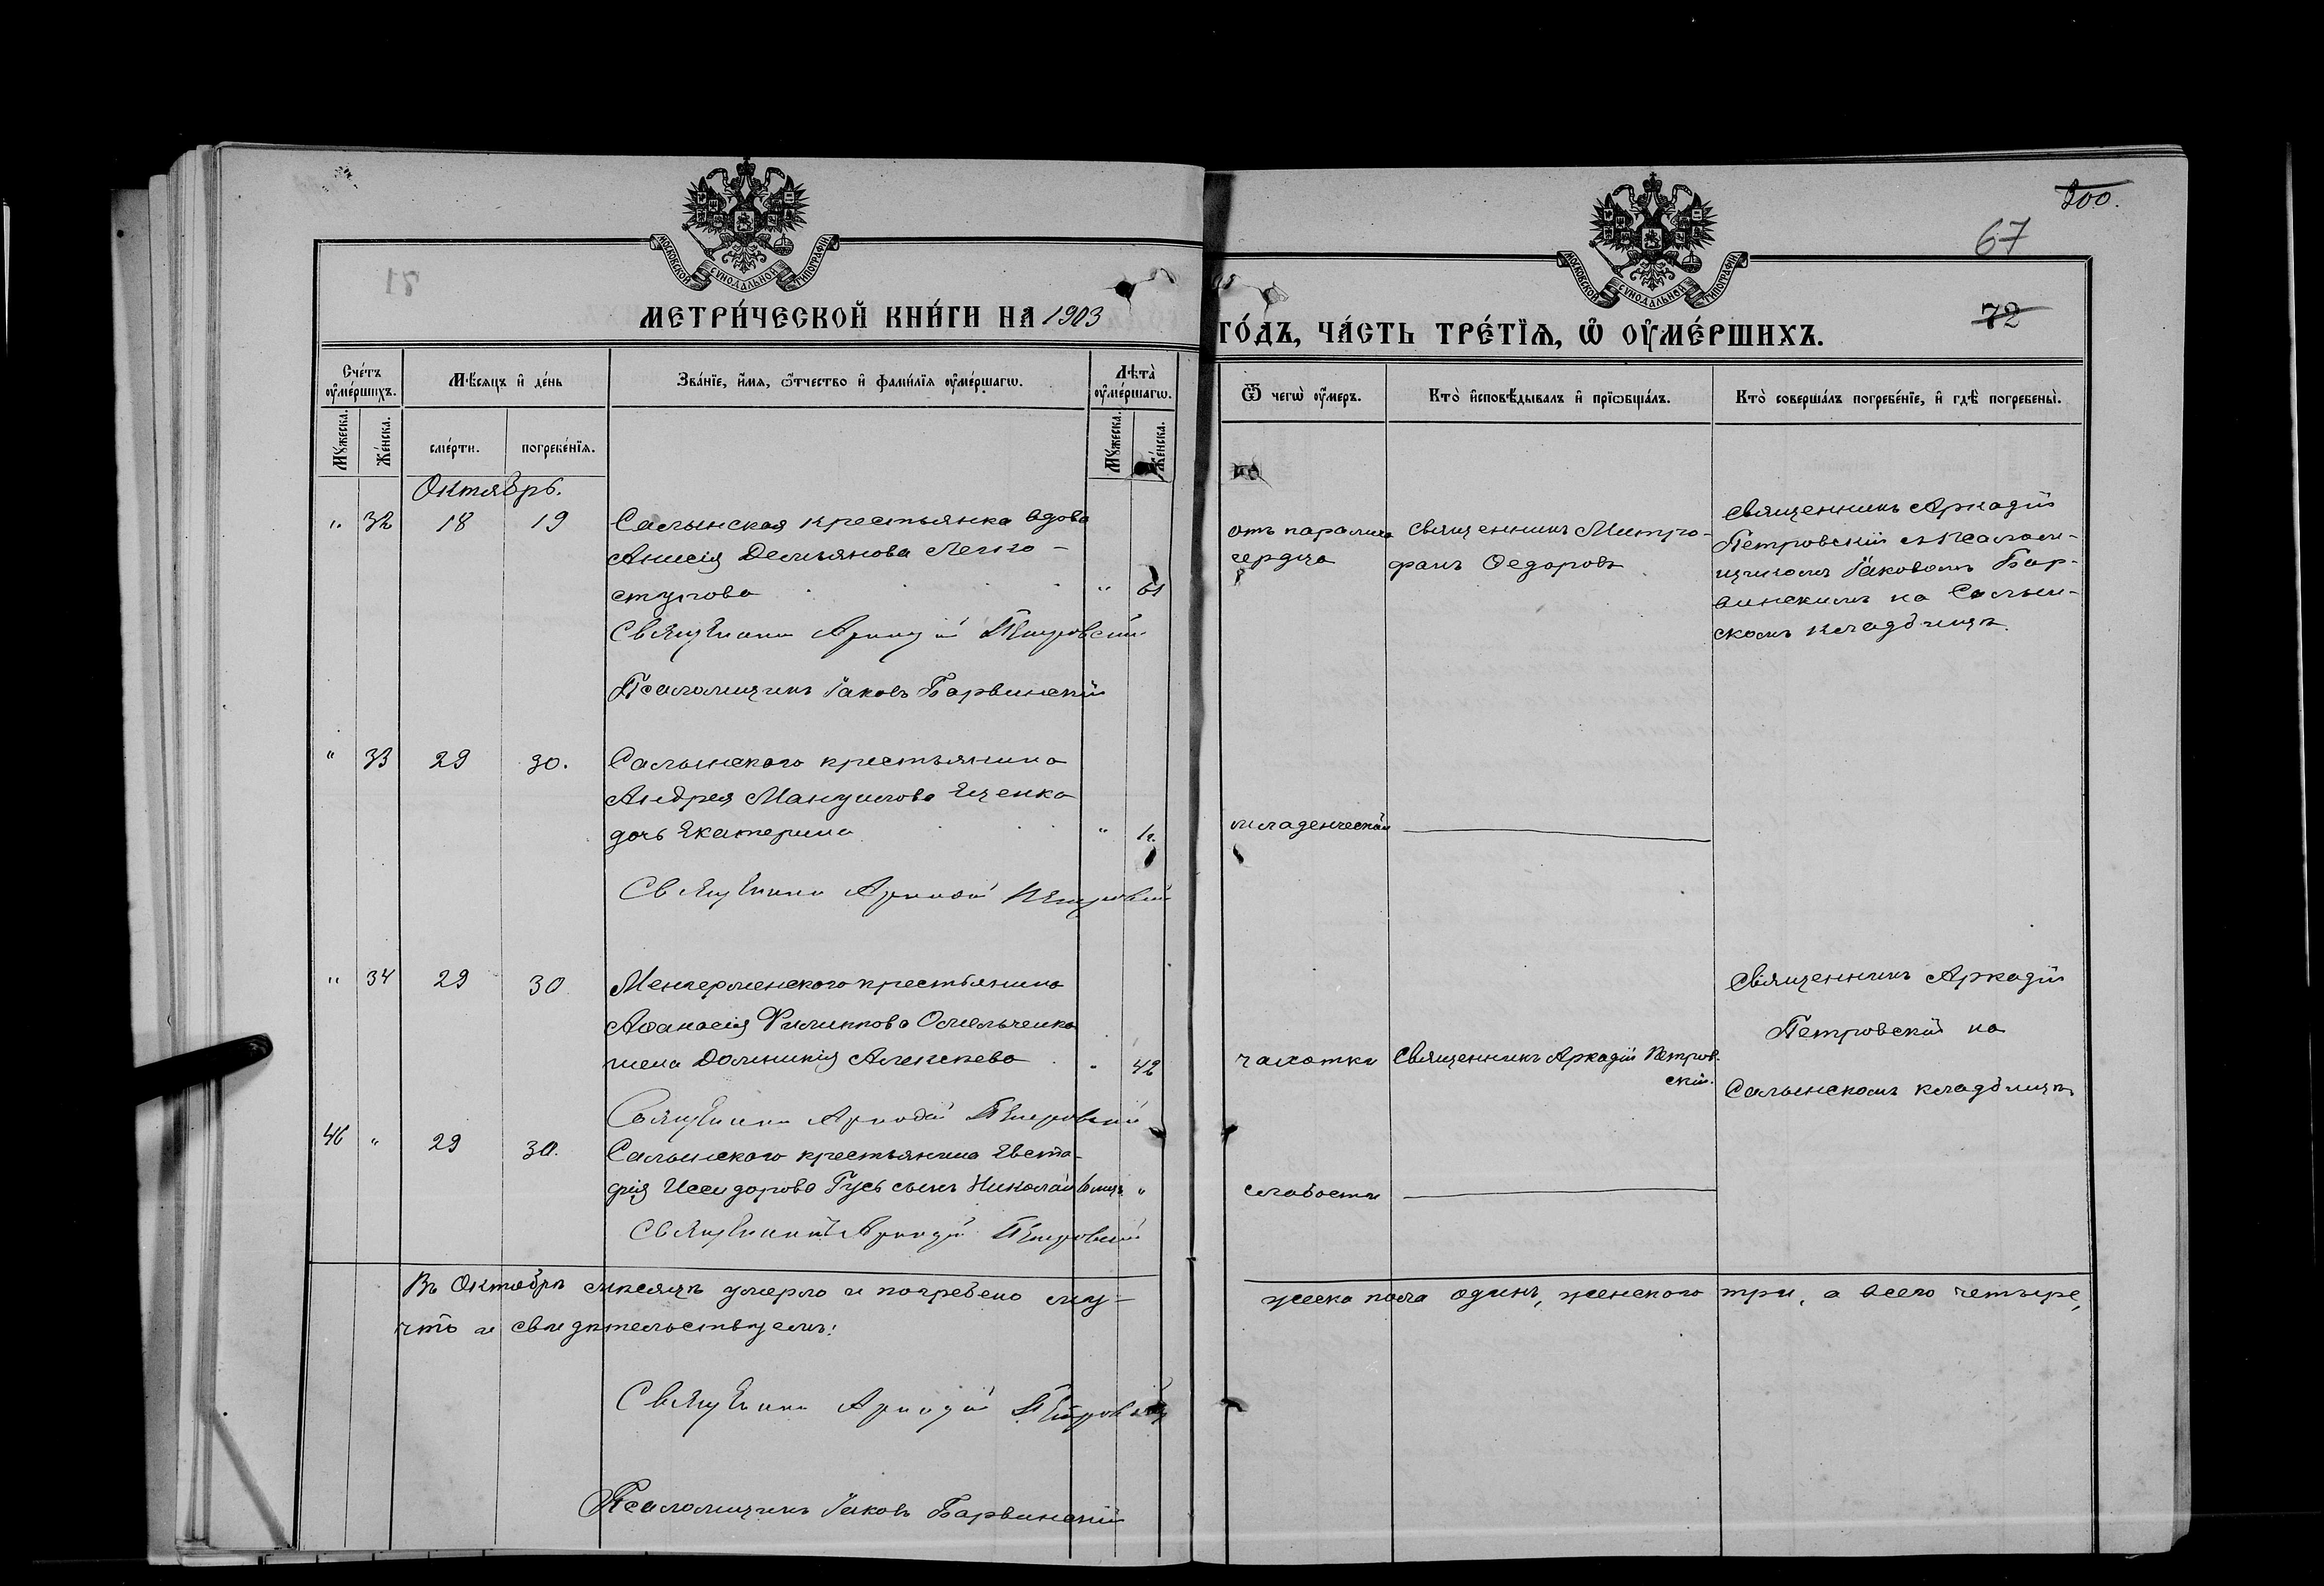 МОСКОВСКОЙ СУНОДАЛЬНОЙ ТИПОГРАФІИ
МОСКОВСКОЙ СУНОДАЛЬНОЙ ТИПОГРАФІИ
200.
67
71
72
МЕТРИ́ЧЕСКОЙ КНИ́ГИ НА 1903
ГО́ДЪ, ЧА́СТЬ ТРЕ́ТЇѦ, Ѽ ОУ҆МЕ́РШИХЪ.
Сче́тъ оу҆ме́ршихъ.
Мѣ́сяцъ и҆ де́нь
Зва́нїе, и҆́мѧ, ѻ҆́тчество и҆ фами́лїѧ оу҆ме́ршагѡ.
Лѣ́та оу҆ме́ршагѡ.
Ѿ чегѡ̀ оу҆́меръ.
Кто̀ и҆сповѣ́дывалъ и҆ прїѡбща́лъ.
Кто̀ соверша́лъ погребе́нїе, и҆ гдѣ̀ погребены̀.
Мꙋ́жеска.
Же́нска.
сме́рти.
погребе́нїѧ.
Мꙋ́жеска.
Же́нска.
Октябрь.
" 32 18 19 Салынская крестьянка вдова
Анисія Демьянова
" 61
Священникъ Аркадій Петровскій
Псаломщикъ Іаковъ Барвинскій
отъ паралича
сердца
Священникъ Митро-
фанъ Федоровъ
Священникъ Аркадій
Петровскій съ Псалом-
щикомъ Іаковомъ Бар-
винскимъ на Салын-
скомъ кладбищѣ.
" 33 29 30. Салынскаго крестьянина
Андрея Мануилова Ященко
дочь Екатерина " 1г.
Священникъ Аркадій Петровскій
младенческой
" 34 29 30 Менчерменскаго крестьянина
Аѳанасія Филиппова Омельченко
жена Домникія Алексѣева " 42
Священникъ Аркадій Петровскій
чахотки
Священникъ Аркадій Петров-
скій.
Священникъ Аркадій
Петровскій на
Салынскомъ кладбищѣ
46 " 29 30. Салынскаго крестьянина Евста-
фія Исидорова Гусь сынъ Николай 6 мцъ "
Священникъ Аркадій Петровскій
слабости
Въ Октябрѣ мѣсяцѣ умерло и погребено му-
жеска пола одинъ, женскаго три, а всего четыре,
что и свидѣтельствуемъ:
Священникъ Аркадій Петровскій
Псаломщикъ Іаковъ Барвинскій